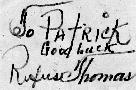 To PATRICK
Good Luck
Rufus Thomas